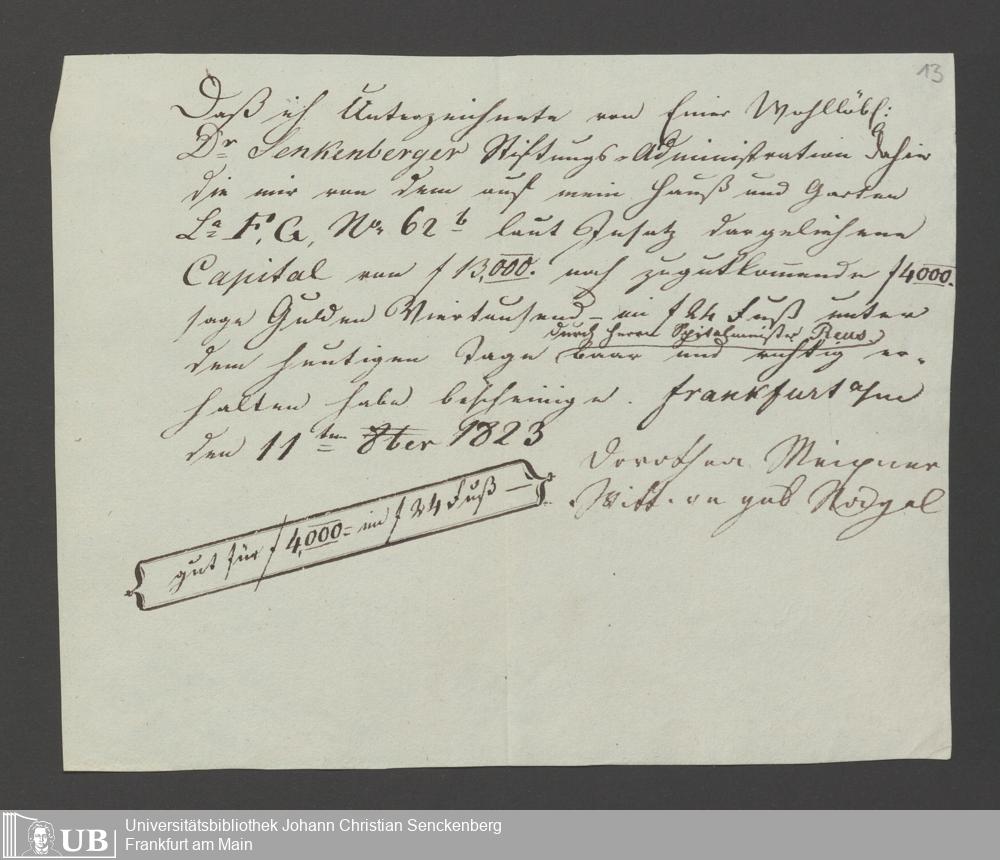 13
Daß ich Unterzeichnete von Einer Wohllöbl:
Dr Senkenberger Stiftungs-Administration dahier
die mir von dem auf mein Hauß und Garten
La F, G, No 62 b laut Insatz dargeliehene
Capital von f 13,000. noch zugutkommende f 4000.
sage Gulden Viertausend – im f 24 Fuß unter
durch Herrn Spitalmeister Reus
dem heutigen Tage baar und richtig er-
halten habe bescheinige. Frankfurt a/m
den 11ten 8ber 1823
Dorothea
Witt geb
gut für f 4,000 = im f 24 Fuß –
UB
Universitätsbibliothek Johann Christian Senckenberg
Frankfurt am Main